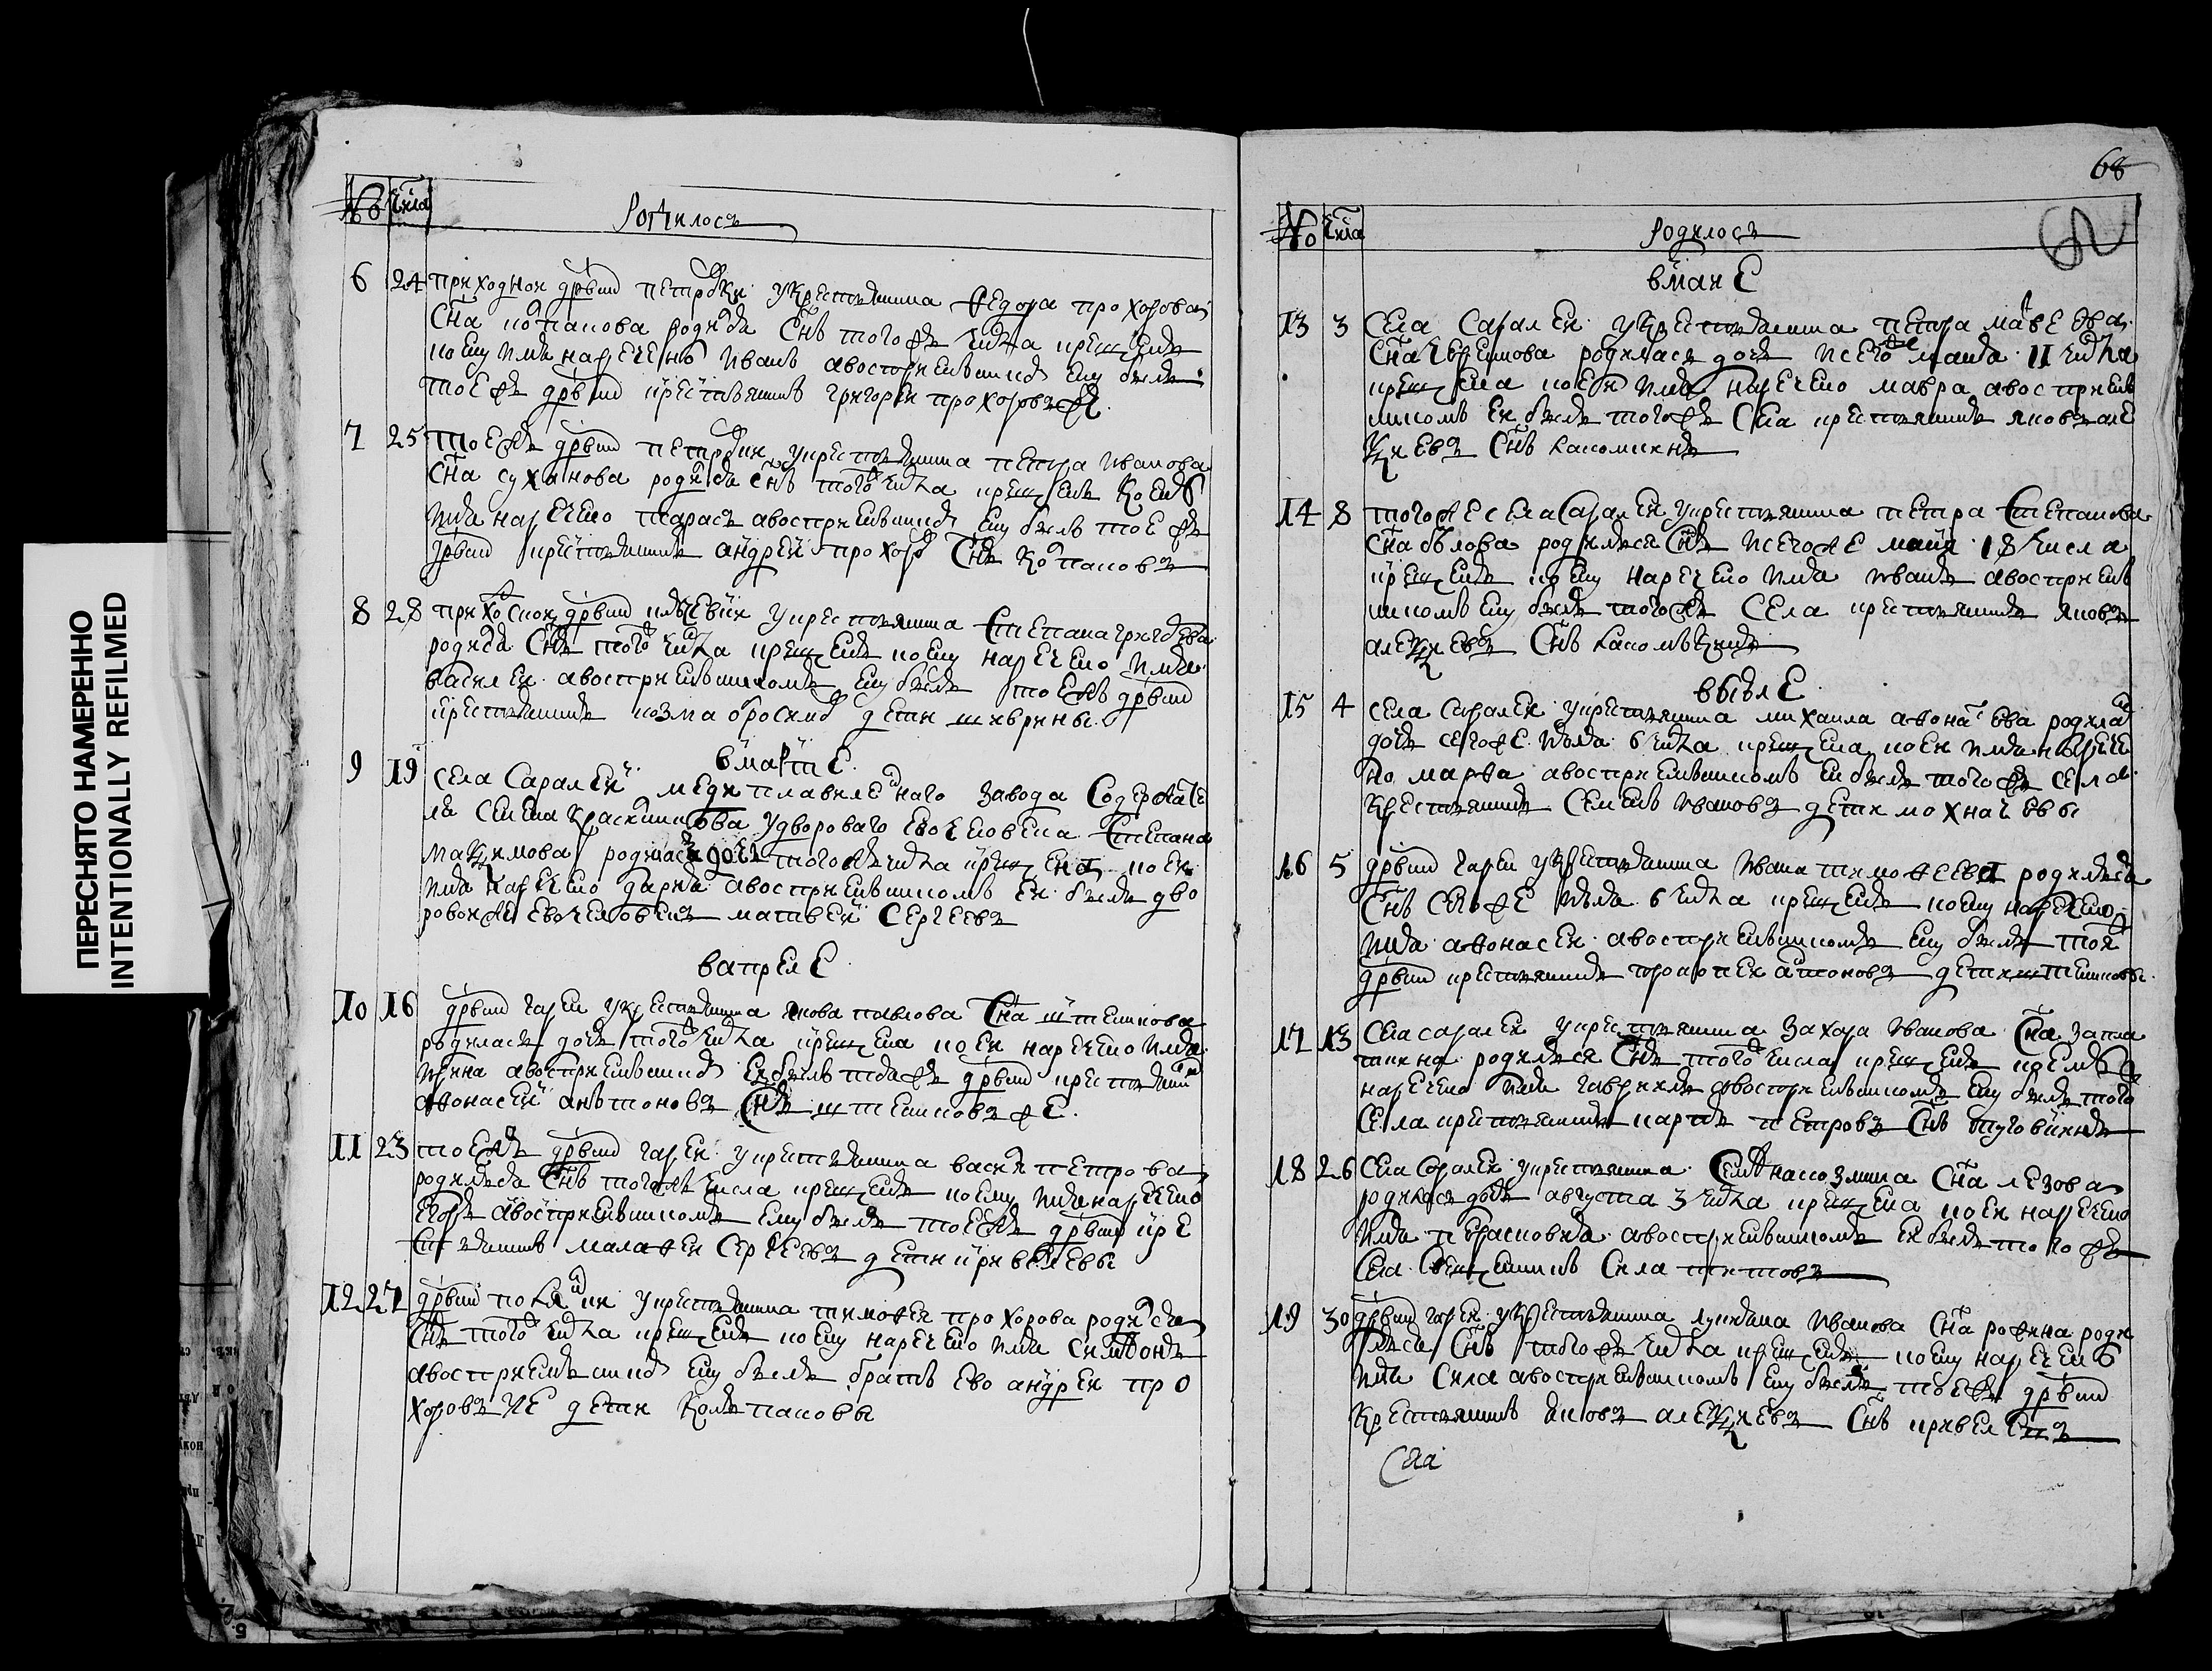 ПЕРЕСНЯТО НАМЕРЕННО
INTENTIONALLY REFILMED
№ числа
Родилось
6 24 приходной дрвни петровки у крестьянина федора прохорова
сна колпакова родился снъ того ж числа крещенъ
коему имя наречено иванъ а восприемникомъ ему былъ
тоеж дрвни крестьянинъ григорей прохоровъ же
7 25 тоеж дрвни петровки у крестьянина петра иванова
сна суханова родился снъ того числа крещенъ коему
имя наречено тарасъ а восприемникомъ ему былъ тое ж
дрвни крестьянинъ андрей прохоров снъ колпаковъ
8 28 дрвни у крестьянина степана григорева
родился снъ того числа крещенъ коему наречено имя
василей а восприемникомъ ему былъ тоежъ дрвни
крестьянинъ козма дети
в марте
9 19 села саралей медиплавиленаго завода содержате
ля семена красилникова у дворового ево человека степана
максимова родилась дочь того ж числа крещена коей
имя наречено дарья а восприемникомъ ей былъ дво
ровой ж ево человекъ матвей сергеевъ
в апреле
10 16 дрвни гарей у крестьянина якова павлова сна
родилась дочь того числа крещена коей наречено имя
ирина а восприемникомъ ей былъ тояж дрвни крестьянинъ
афонасей антоновъ снъ же
11 23 тоежъ дрвни гарей у крестьянина василья петрова
родился снъ тогож числа крещенъ коему имя наречено
егоръ а восприемникомъ ему былъ тоежъ дрвни кре
стьянинъ малафей сергеевъ дети
12 27 дрвни у крестьянина тимофея прохорова родился
снъ того числа крещенъ коему наречено имя симеонъ
а восприемникомъ ему былъ братъ ево андрей про
хоровъ же дети колпаковы
68
№ числа
Родилось
в маие
13 3 села саралей у крестьянина петра матвеева
сна родилась дочь и сего маия 11 числа
крещена коей имя наречено мавра а восприем
никомъ ей былъ того ж села крестьянинъ яковъ але
ксеевъ снъ
14 8 того же села саралей у крестьянина петра степанова
сна белова родился снъ и сего же маия 18 числа
крещенъ коему наречено имя иванъ а восприем
никомъ ему былъ того ж села крестьянинъ яковъ
алексеевъ снъ
в июле
15 4 села саралей у крестьянина михаила афонасева родилас
дочь сего же июля 6 числа крещена коей имя нарече
но марфа а восприемникомъ ей былъ того ж села
крестьянинъ семенъ ивановъ дети мохначевы
16 5 дрвни гарей у крестьянина ивана тимофеева родился
снъ сего же июля 6 числа крещенъ коему наречено
имя афонасей а восприемникомъ ему былъ тояж
дрвни крестьянинъ прокопей антоновъ дети
17 13 села саралей у крестьянина захара иванова сна запла
тина родился снъ того числа крещенъ коему
наречено имя гавриилъ а восприемникомъ ему былъ того
села крестьянинъ карпъ петровъ снъ
18 26 села саралей у крестьянина козмина сна лезова
родилась дочь августа 3 числа крещена коей наречено
имя парасковья а восприемникомъ ей былъ того ж
села священникъ сила титовъ
19 30 дрвни гарей у крестьянина лукияна иванова сна роди
лся снъ того ж числа крещенъ коему наречено
имя сила а восприемникомъ ему былъ тоежъ дрвни
крестьянинъ яковъ алексеевъ снъ
села